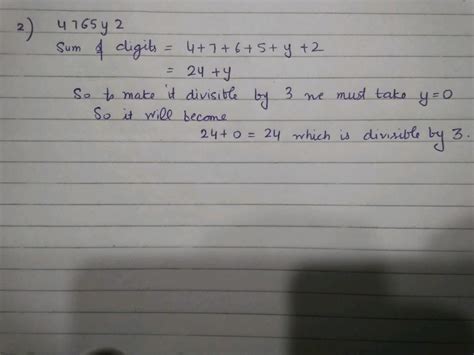 2) 4765y2
Sum of digits = 4+7+6+5+y+2
= 24+y
So to make it divisible by 3 we must take y=0
So it will become
24+0 = 24 which is divisible by 3.